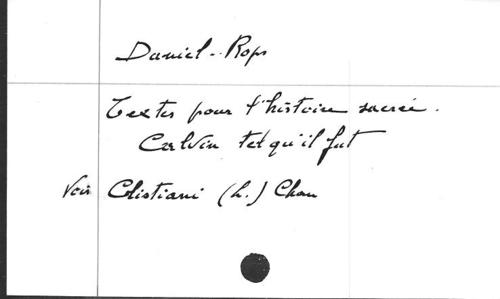 Daniel-Rops
Textes pour l'histoire sacrée.
Calvin tel qu'il fut
Voir Cristiani (L.) Chan